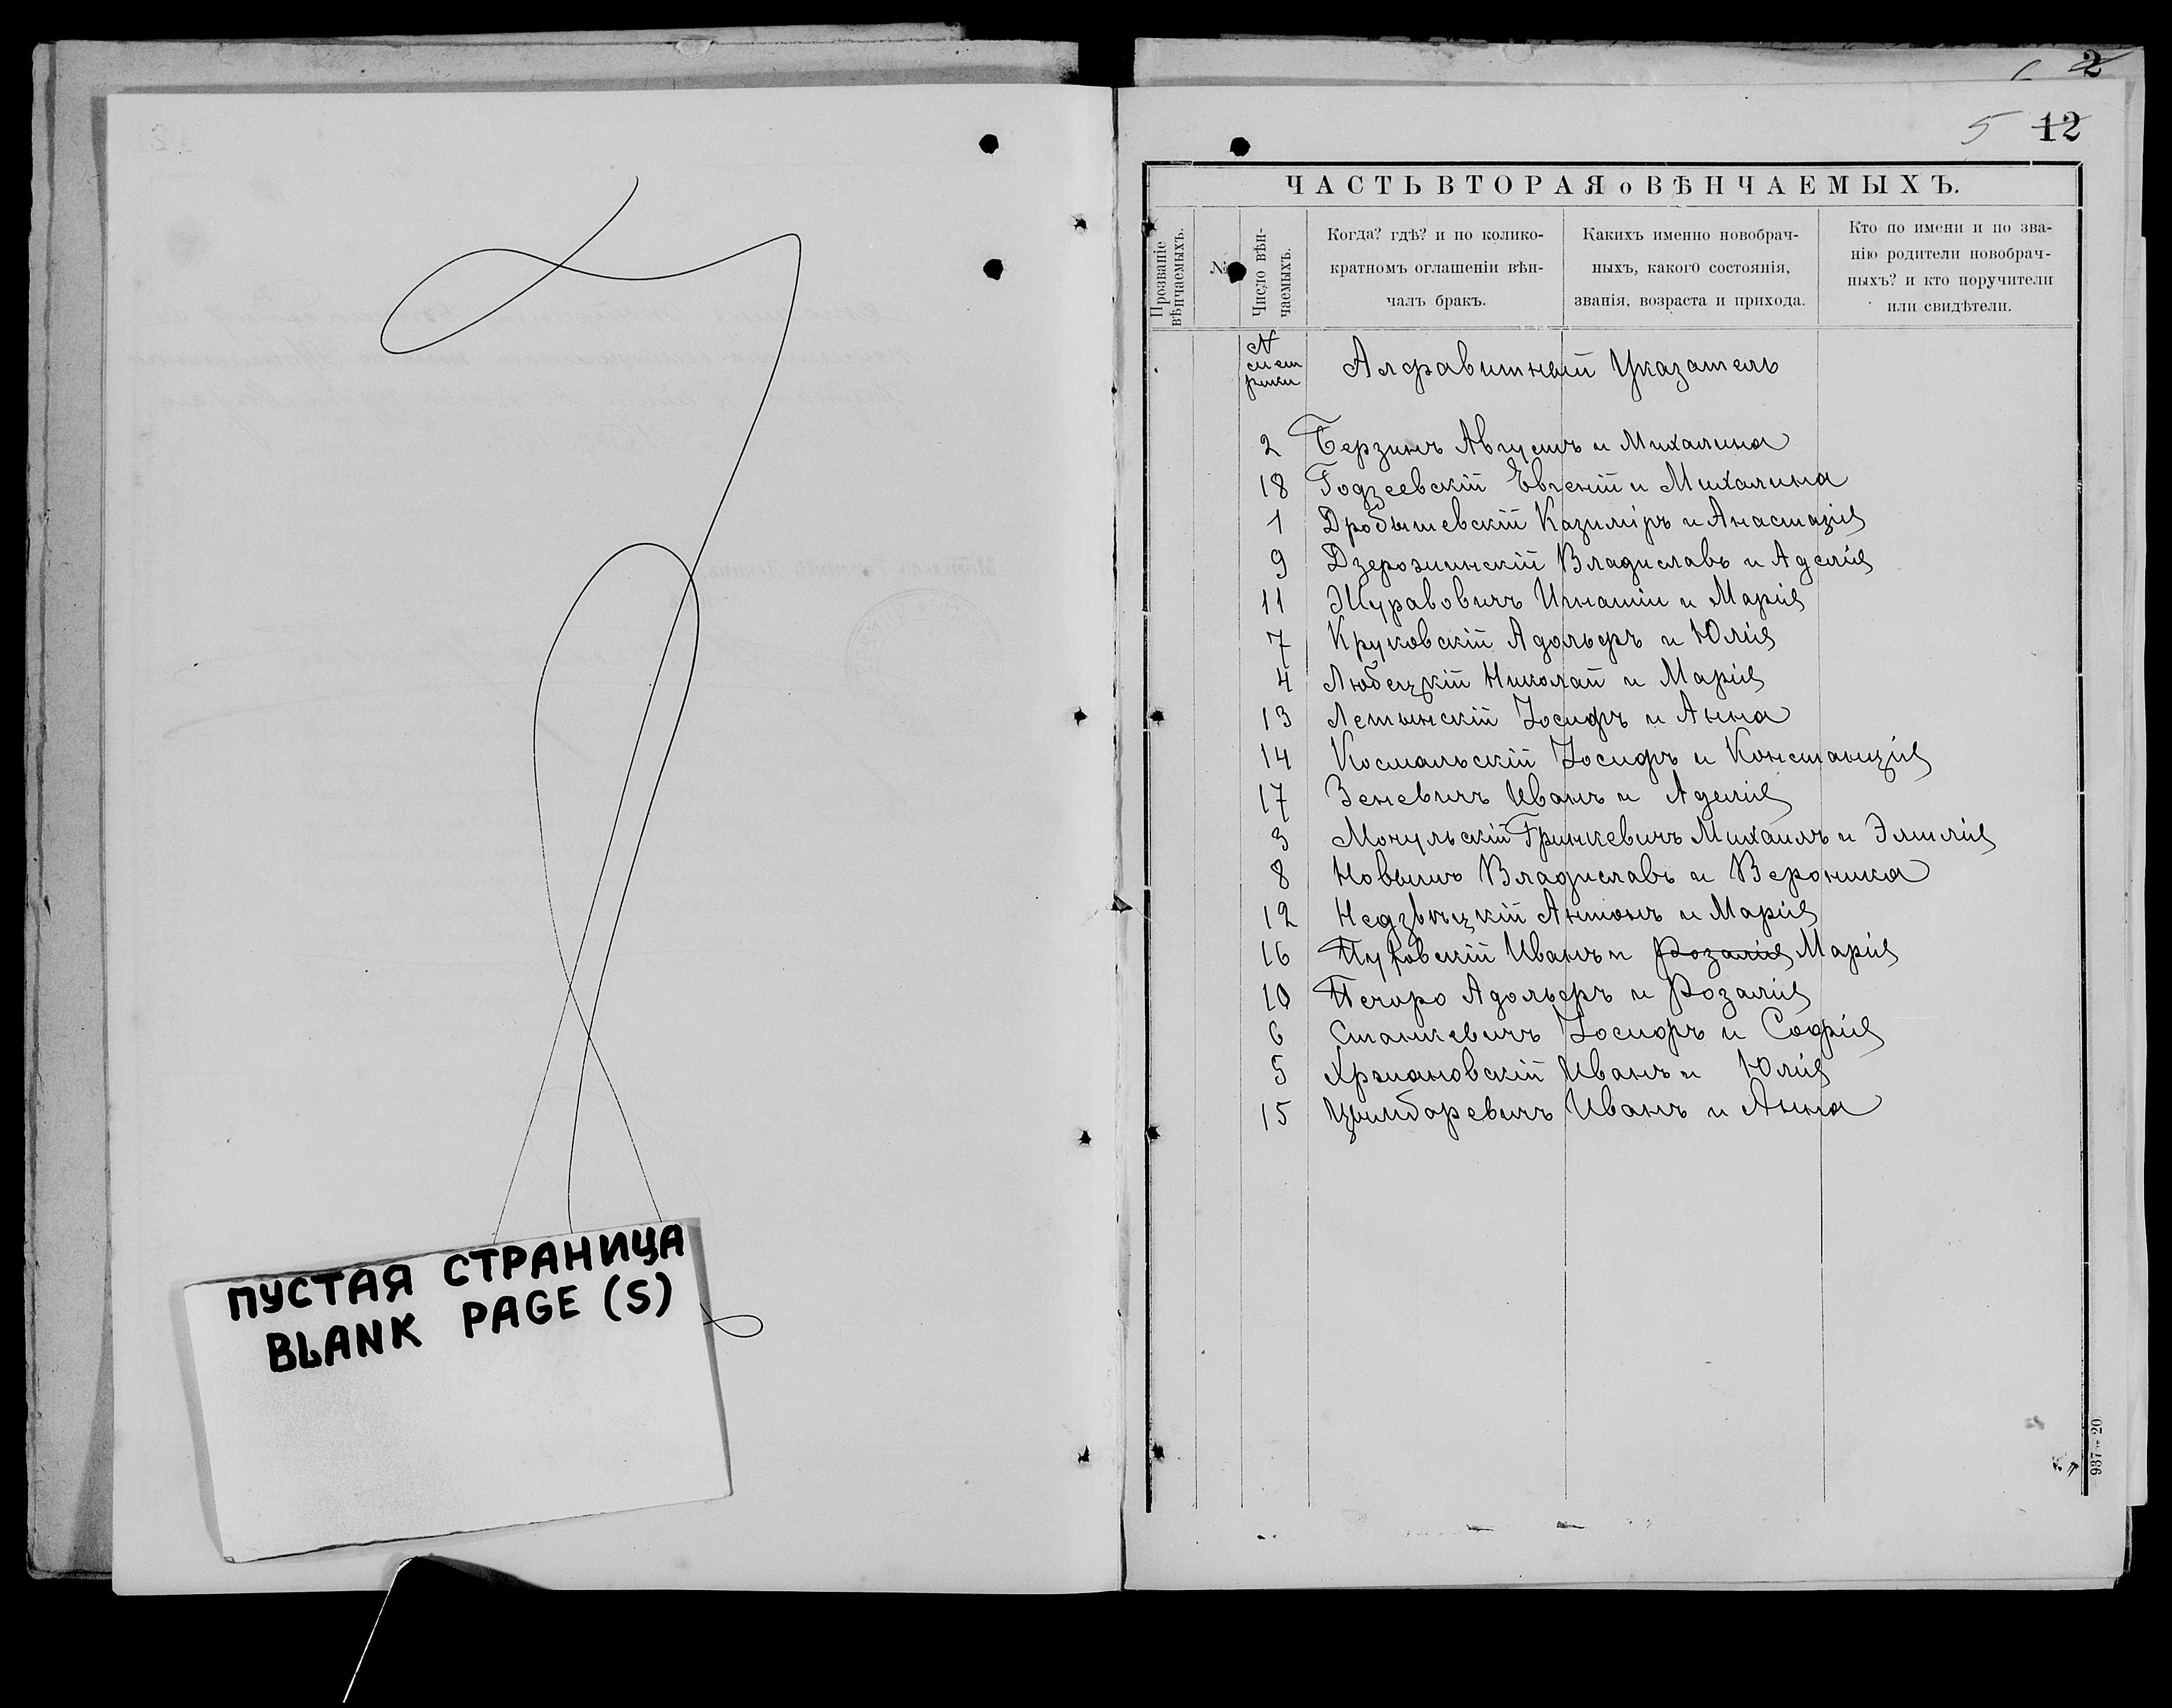 ПУСТАЯ СТРАНИЦА
BLANK PAGE (S)
2
5 12
ЧАСТЬ ВТОРАЯ о ВѢНЧАЕМЫХЪ.
Прозваніе вѣнчаемыхъ.
№
Число вѣнчаемыхъ.
Когда? гдѣ? и по колико-
кратномъ оглашеніи вѣн-
чалъ бракъ.
Какихъ именно новобрач-
ныхъ, какого состоянія,
званія, возраста и прихода.
Кто по имени и по зва-
нію родители новобрач-
ныхъ? и кто поручители
или свидѣтели.
N
мет
рики
Алфавитный Указатель
2 Берзинъ Августъ и Михалина
18 Годзеевскій Евгеній и Михалина
1 Дробышевскій Казиміръ и Анастазія
9 Дзерожинскій Владиславъ и Аделія
11 Журавовичъ Игнатій и Марія
7 Круковскій Адольфъ и Юлія
4 Любецкій Николай и Марія
13 Летынскій Іосифъ и Анна
14 Космальскій Іосифъ и Констанція
17 Зеневичъ Иванъ и Аделія
3 Мочульскій Гринкевичъ Михаилъ и Эмилія
8 Владиславъ и Вероника
12 Недзвѣцкій Антонъ и Марія
16 Иванъ и Розалія Марія
10 Печоро Адольфъ и Розалія
6 Станкевичъ Іосифъ и Софія
5 Хржановскій Иванъ и Юлія
15 Цымбаревичъ Иванъ и Анна
937 — 20